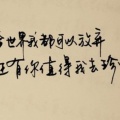 世界我都可以放弃
还有你值得我去珍